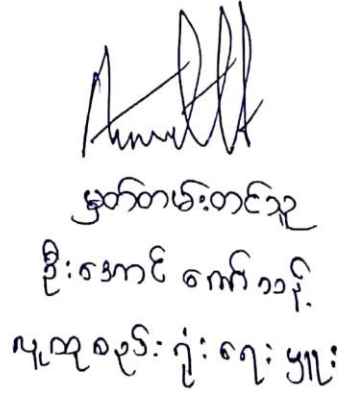 မှတ်တမ်းတင်သူ
ဦးအောင်ကျော်သန့်
လူထုစည်းရုံးရေးမှူး